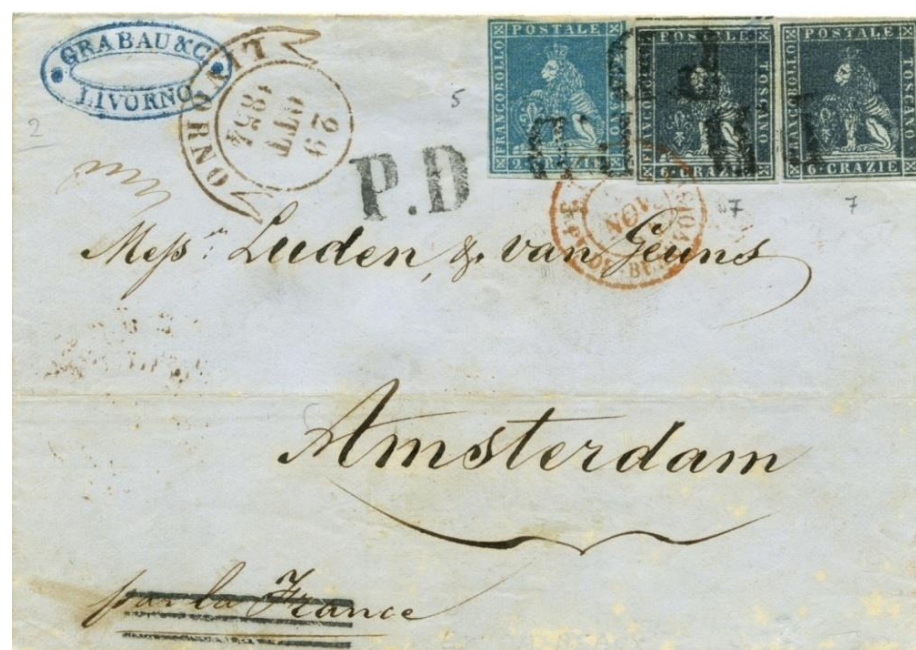 GRABAU & C.
LIVORNO
LIVORNO
29
OTT
1854
P.D
FRANCOBOLLO POSTALE TOSCANO
2
FRANCOBOLLO POSTALE TOSCANO
6 CRAZIE
FRANCOBOLLO POSTALE TOSCANO
6 CRAZIE
NOV.
5
2
7
7
Messrs. Luden & van Geuns
Amsterdam
par la France